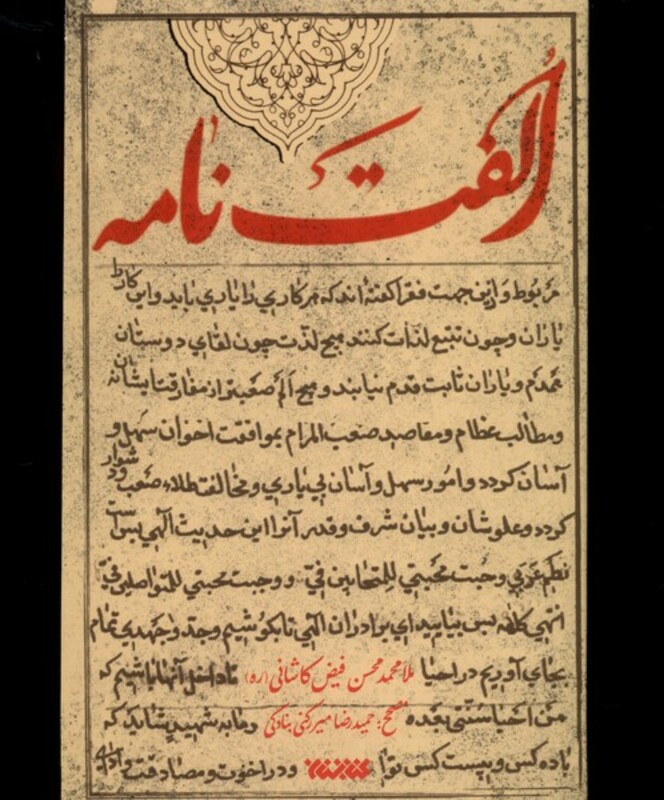 الفت نامه
مربوط و ازین جهت فقرا گفته‌اند که هر کاری را یاری باید و این کار را
یاران و چون تتبع لذات کنند هیچ لذت چون لقای دوستان
همدم و یاران ثابت قدم نیابند و هیچ الم صعبتر از مفارقت ایشان نه
و مطالب عظام و مقاصد صعب المرام بموافقت اخوان سهل و
آسان گردد و امور سهل و آسان بی یاری و مخالفت صعب و دشوار
گردد و علو شان و بیان شرف و قدر آنرا این حدیث الهی بس است
وجبت محبتی للمتحابین فی و وجبت محبتی للمتواصلین فی
انتهی کلامه پس بیایید ای برادران الهی تا بکوشیم و جد و جهدی تمام
بجای آوریم در احیا ملا محمد محسن فیض کاشانی (ره) تا داخل آنها باشیم که
من احیا سنتی بعده مصحح: حمیدرضا میررکنی بنادکی و مابه شهید شاید که
یا ده کس و بیست کس توا و در اخوت و مصادقت و ادای